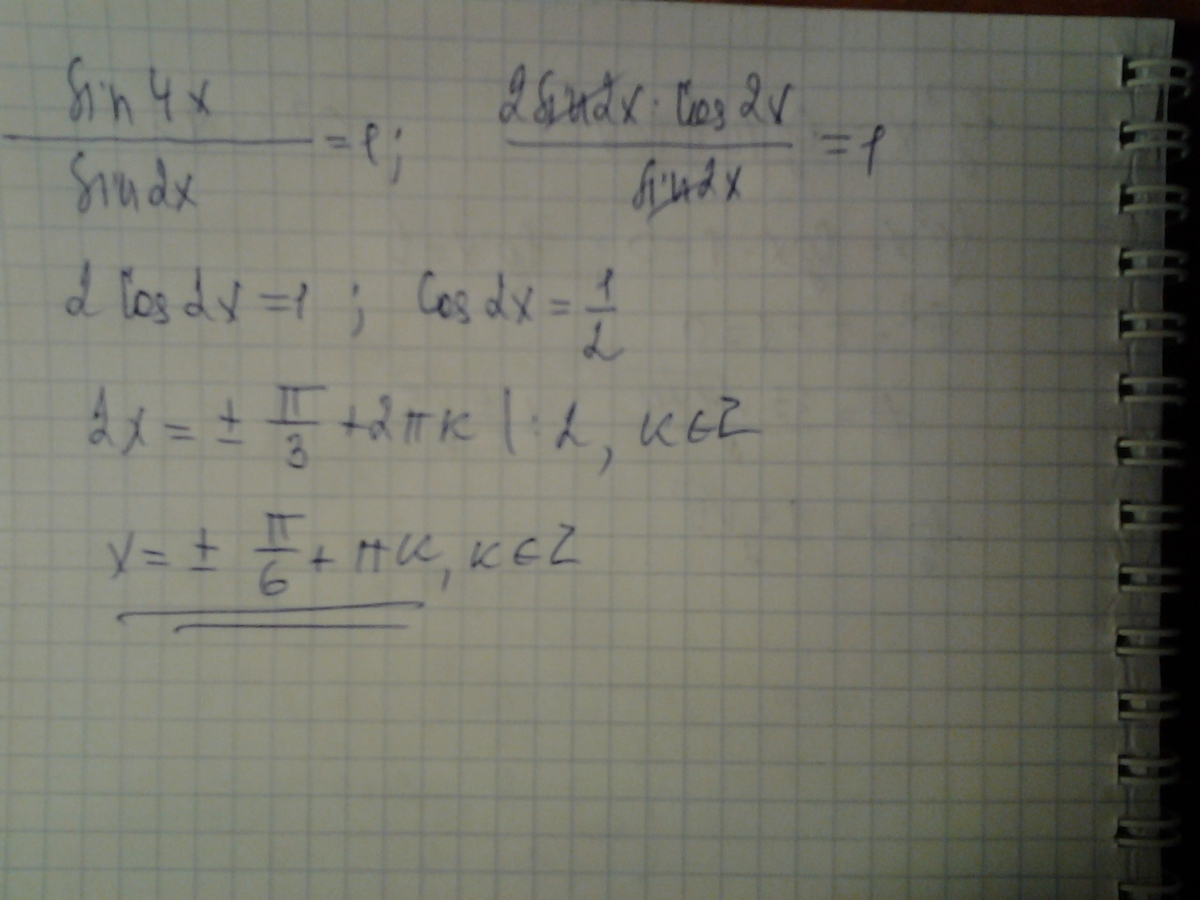 sin 4x / sin 2x = 1; 2 sin 2x · cos 2x / sin 2x = 1
2 cos 2x = 1 ; cos 2x = 1/2
2x = ± π/3 + 2πк | : 2, к ∈ Z
x = ± π/6 + πк, к ∈ Z